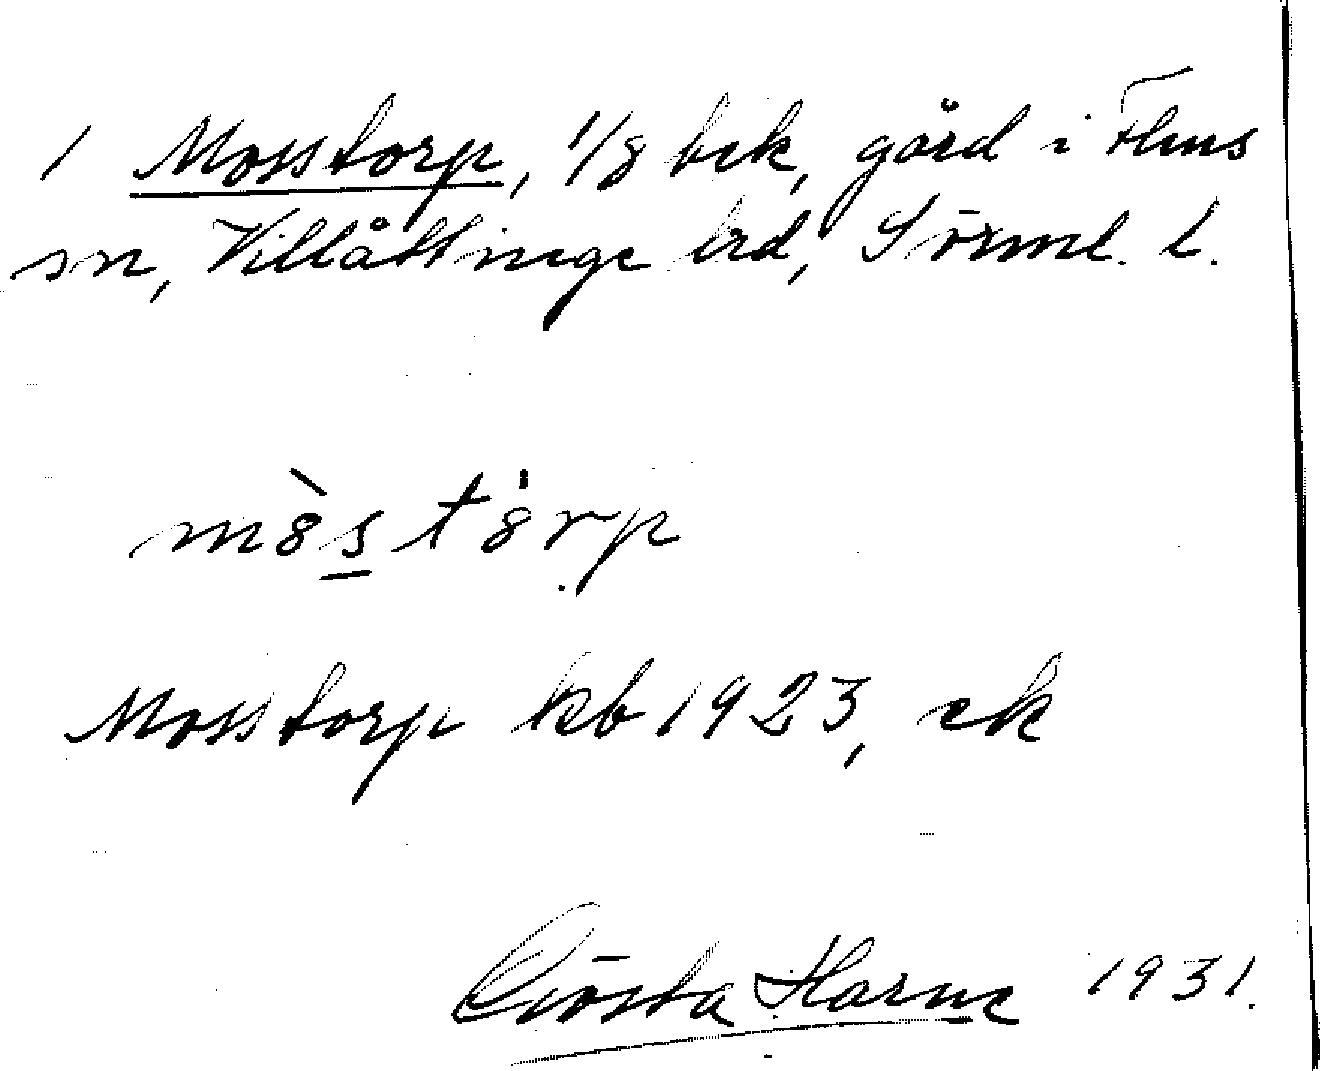 1 Mosstorp, 1/8 bek, gård i Flens
sn, Villåttinge hrd, Sörml. l.
mòstórp
Mosstorp kb 1923, ek
Gösta Harne 1931.